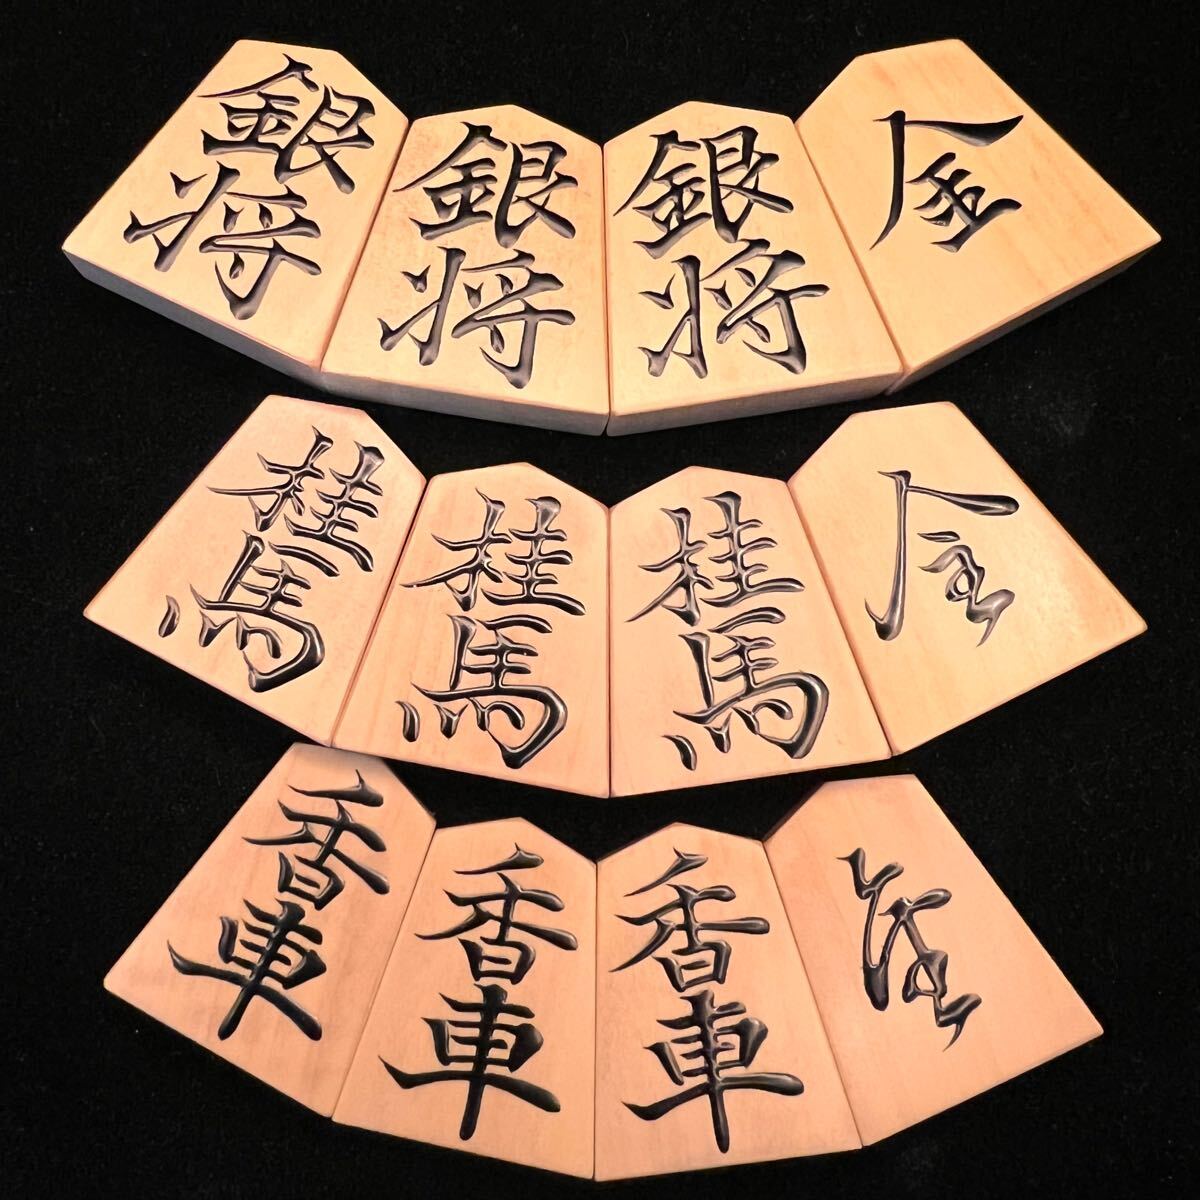 銀将 銀将 銀将 全
桂馬 桂馬 桂馬 今
香車 香車 香車 杏